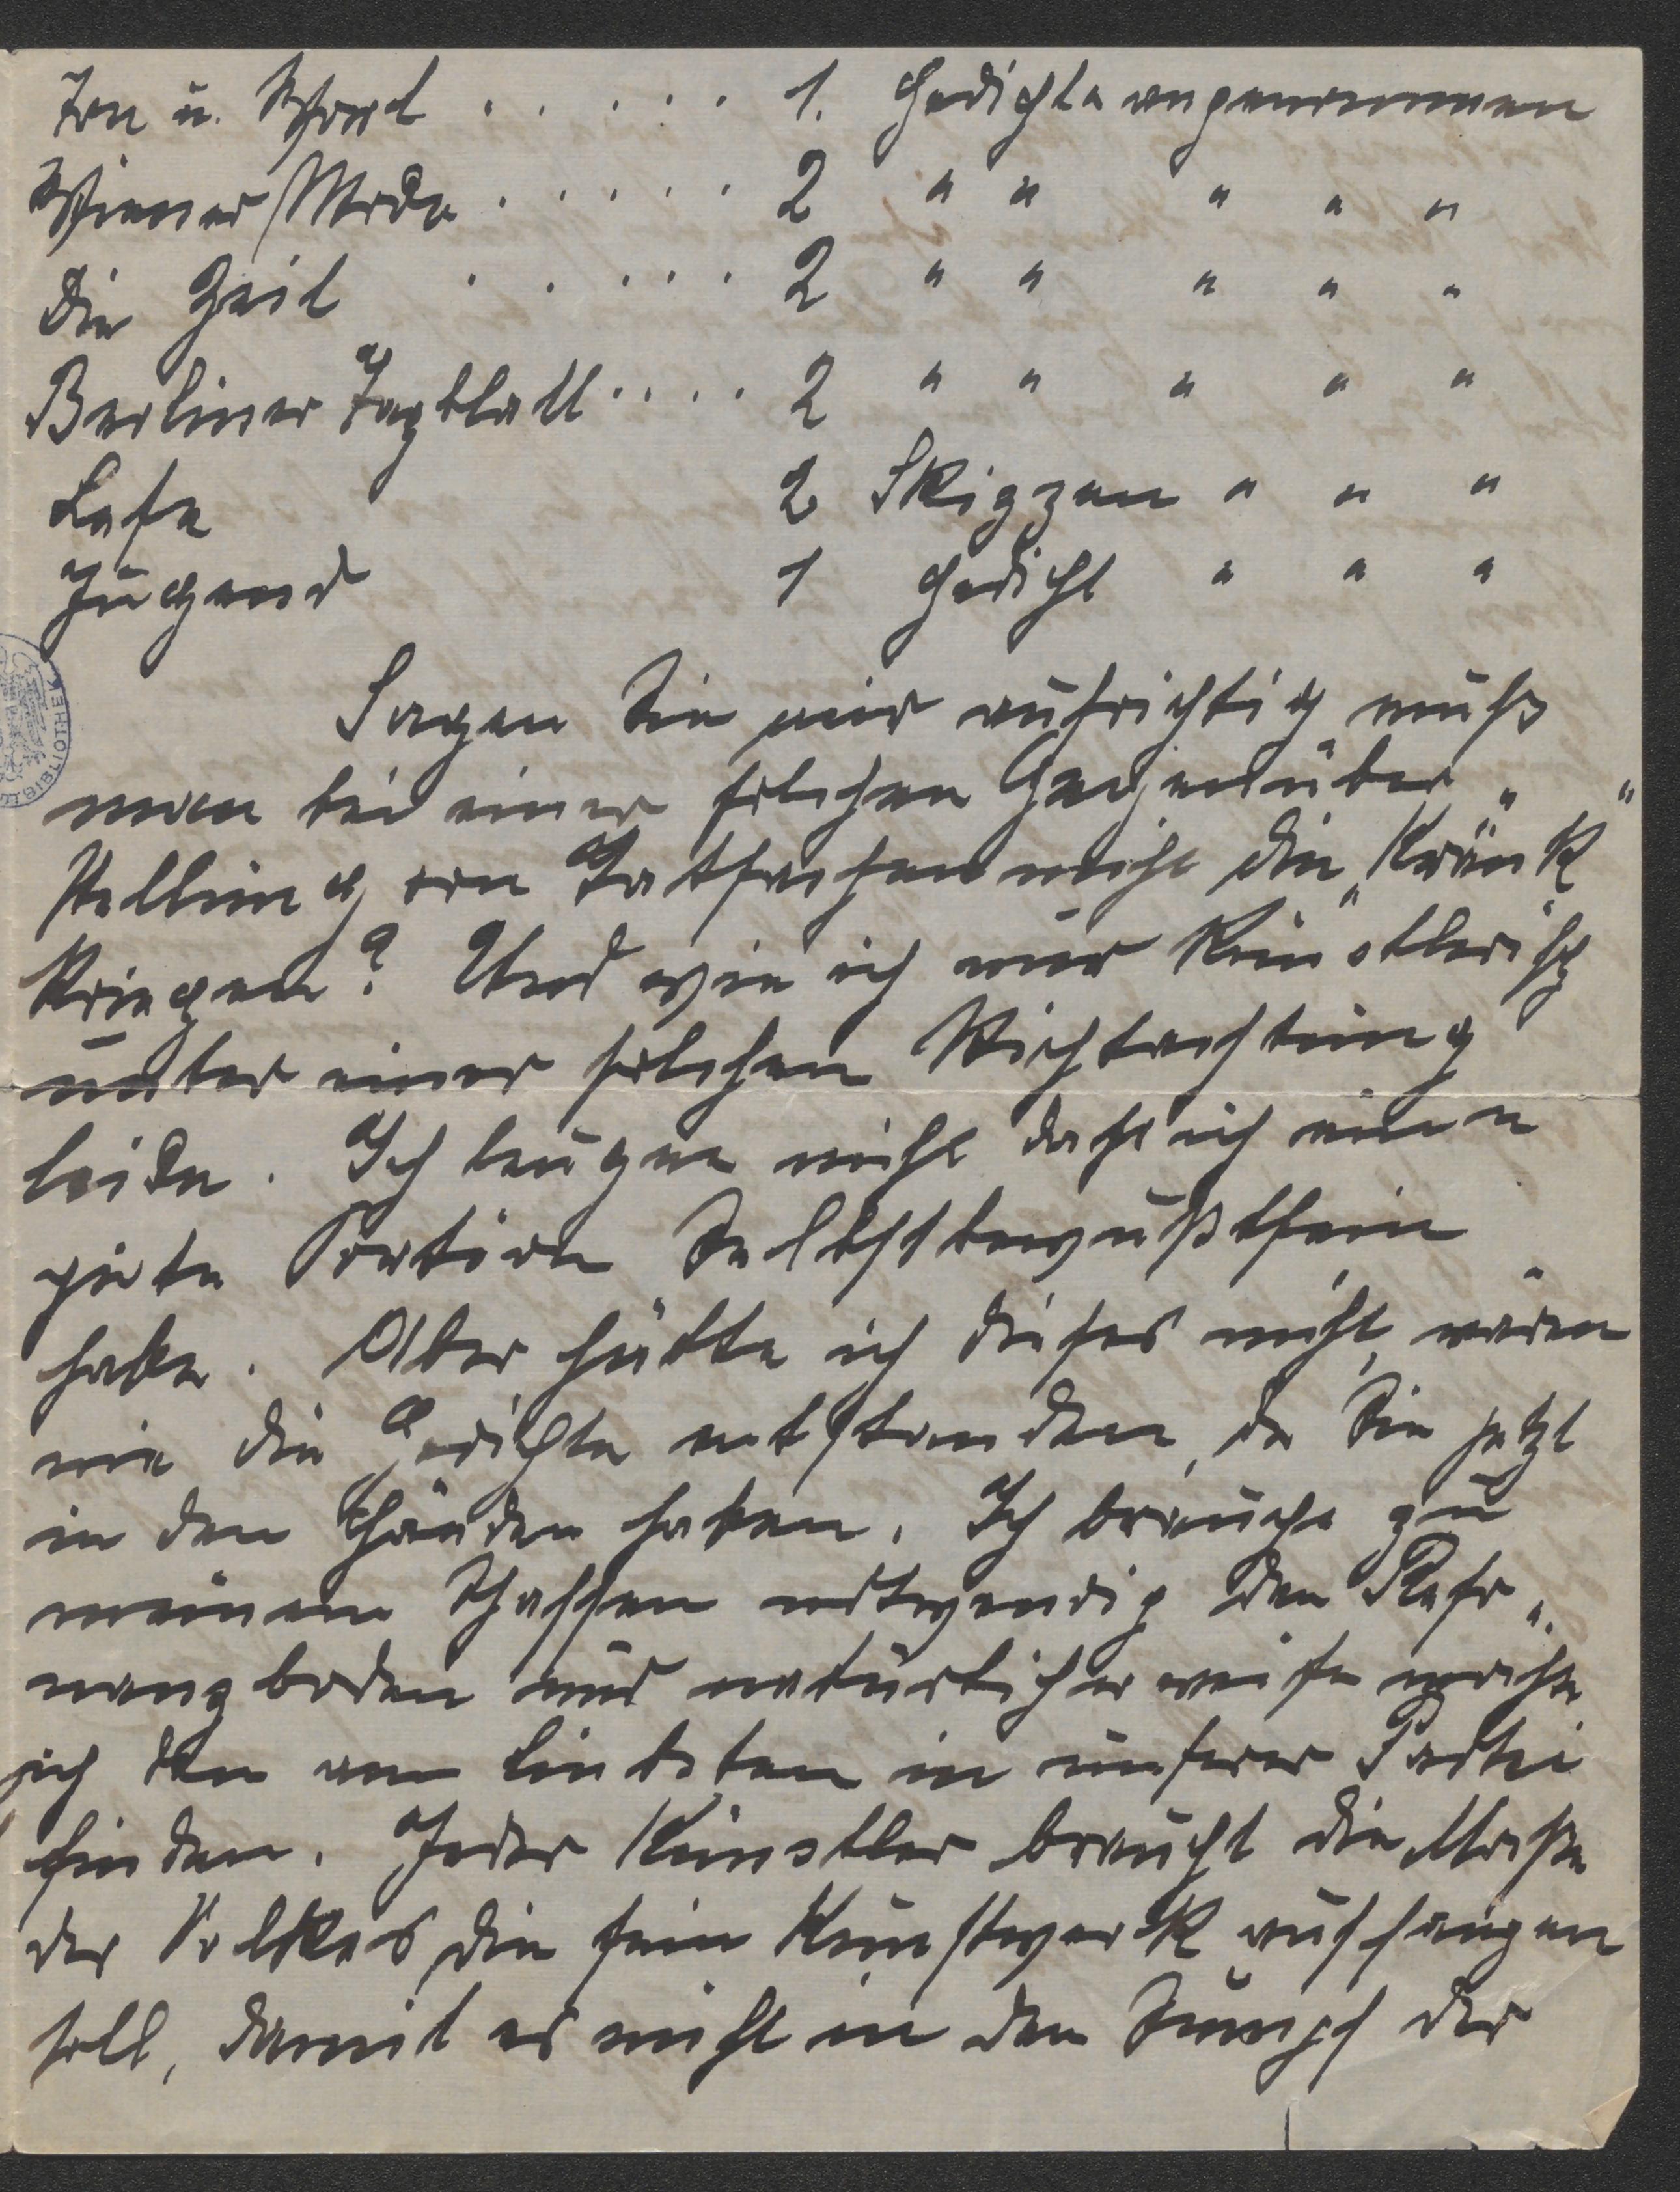 Ton u. Wort . . . . . 1. Gedichte angenommen
Wiener Mode . . . . . 2 " " " " "
Die Zeit . . . . . 2 " " " " "
Berliner Tagblatt . . . . 2 " " " " "
Lese 2 Skizzen " " "
Jugend 1 Gedicht " " "
Sagen Sie mir aufrichtig muß
man bei einer solchen Gegenüber„ "
stellung von Tatsachen nicht die „Kränk
kriegen? Und wie ich nur künstlerisch
unter einer solchen Nichtachtung
leide. Ich leugne nicht daß ich eine
gute Portion Selbstbewußtsein
habe. Aber hätte ich dieses nicht, wären
nie die Gedichte entstanden, die Sie jetzt
in den Händen haben. Ich brauche zu
meinem Schaffen notwendig den Reso„
nanzboden und natürlicherweise möchte
ich den am liebsten in unserer Partei
finden. Jeder Künstler braucht die Masse
des Volkes, die sein Kunstwerk auffangen
soll, damit es nicht in den Sumpf der
BIBLIOTHEK